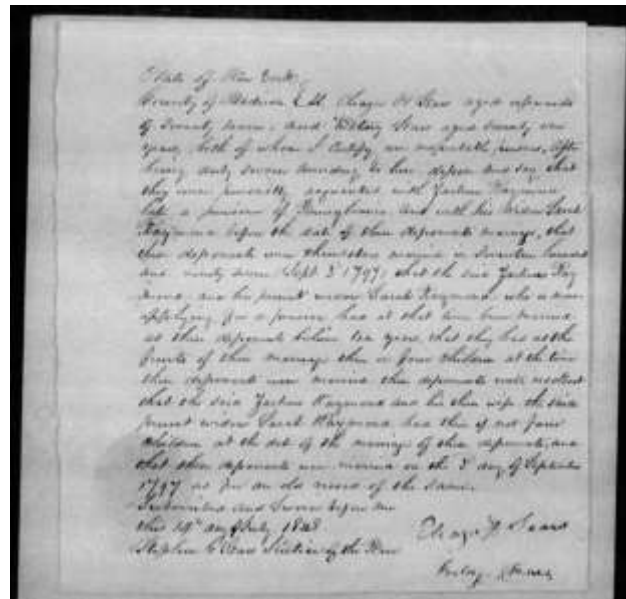 State of New York
County of Madison SS. Sears aged upwards
of Seventy seven, and Sears aged Seventy one
years, both of whom I certify are respectable persons, after
being duly sworn according to law depose and say that
they were personally acquainted with Raymond
late a pensioner of Pennsylvania and with his widow Sarah
Raymond before the date of these deponents marriage, that
these deponents were themselves married in Seventeen hundred
and ninety seven (Sept 3 1797) that the said Ray
mond, and his present widow Sarah Raymond, who is now
applying for a pension had at that time been married
as these deponents believe ten years, that they had as the
fruits of their marriage three or four children at the time
these deponents were married these deponents well recollect
that the said Raymond and his then wife the said
present widow Sarah Raymond had three if not four
children at the date of the marriage of these deponents, and
that these deponents were married on the 3 day of September
1797 as per an old record of the same.
Subscribed and Sworn before me
this day of July 1843
Stephen Justice of the Peace
Sears
Sears